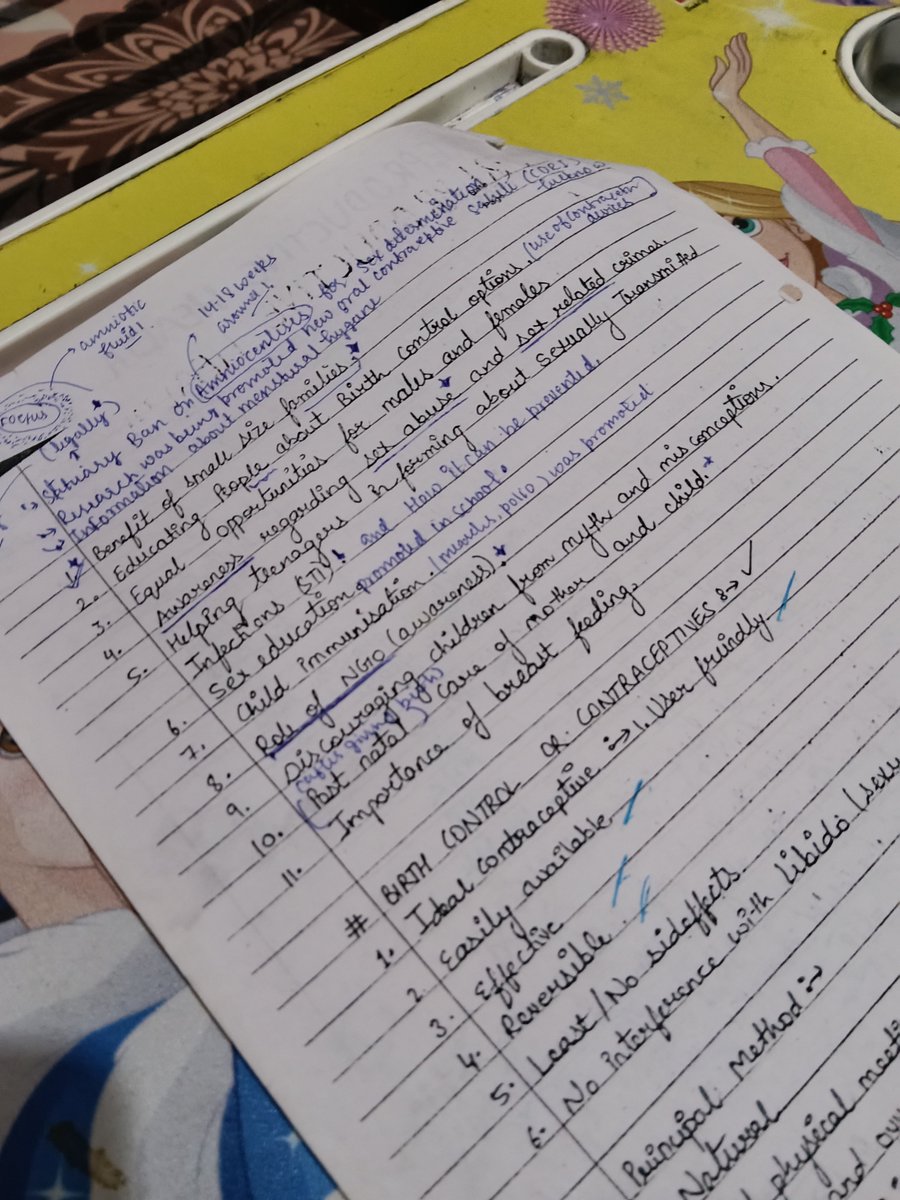 amniotic
fluid!
14-18 weeks
around!
Foetus
(legally)
Statuary Ban on Amniocentisis for sex determination
Research was being promoted New oral contraceptive
(CDRI
Information about menstural hygane
1. Benefit of small size families.
2. Educating People about Birth control options. (use of contraceptn
devices
3. Equal opportunities for males and females
4. Awareness regarding sex abuse and sex related crimes.
5. Helping teenagers informing about Sexually Transmitted
Infections (STI) and How it can be prevented.
6. Sex education promoted in school.
7. Child immunisation. (measles, polio) was promoted
8. Role of NGO (awareness).
9. Discouraging children from myth and misconceptions.
(after giving birth)
10. Post natal care of mother and child.
11. Importance of breast feeding.
# BIRTH CONTROL OR CONTRACEPTIVES :->
1. Ideal contraceptive :-> 1. User frindly
2. Easily available
3. Effective
4. Reversible
5. Least/No sideffects
6. No interference with libido (sexu
Principal method :->
Natural
physical meeti
and